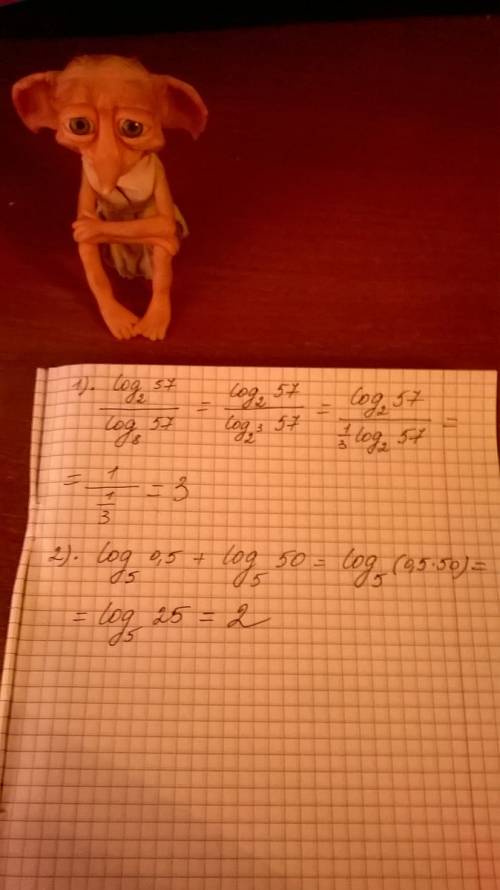 1). log₂ 57 / log₈ 57 = log₂ 57 / log₂³ 57 = log₂ 57 / ⅓ log₂ 57 =
= 1 / ⅓ = 3
2). log₅ 0,5 + log₅ 50 = log₅ (0,5·50) =
= log₅ 25 = 2